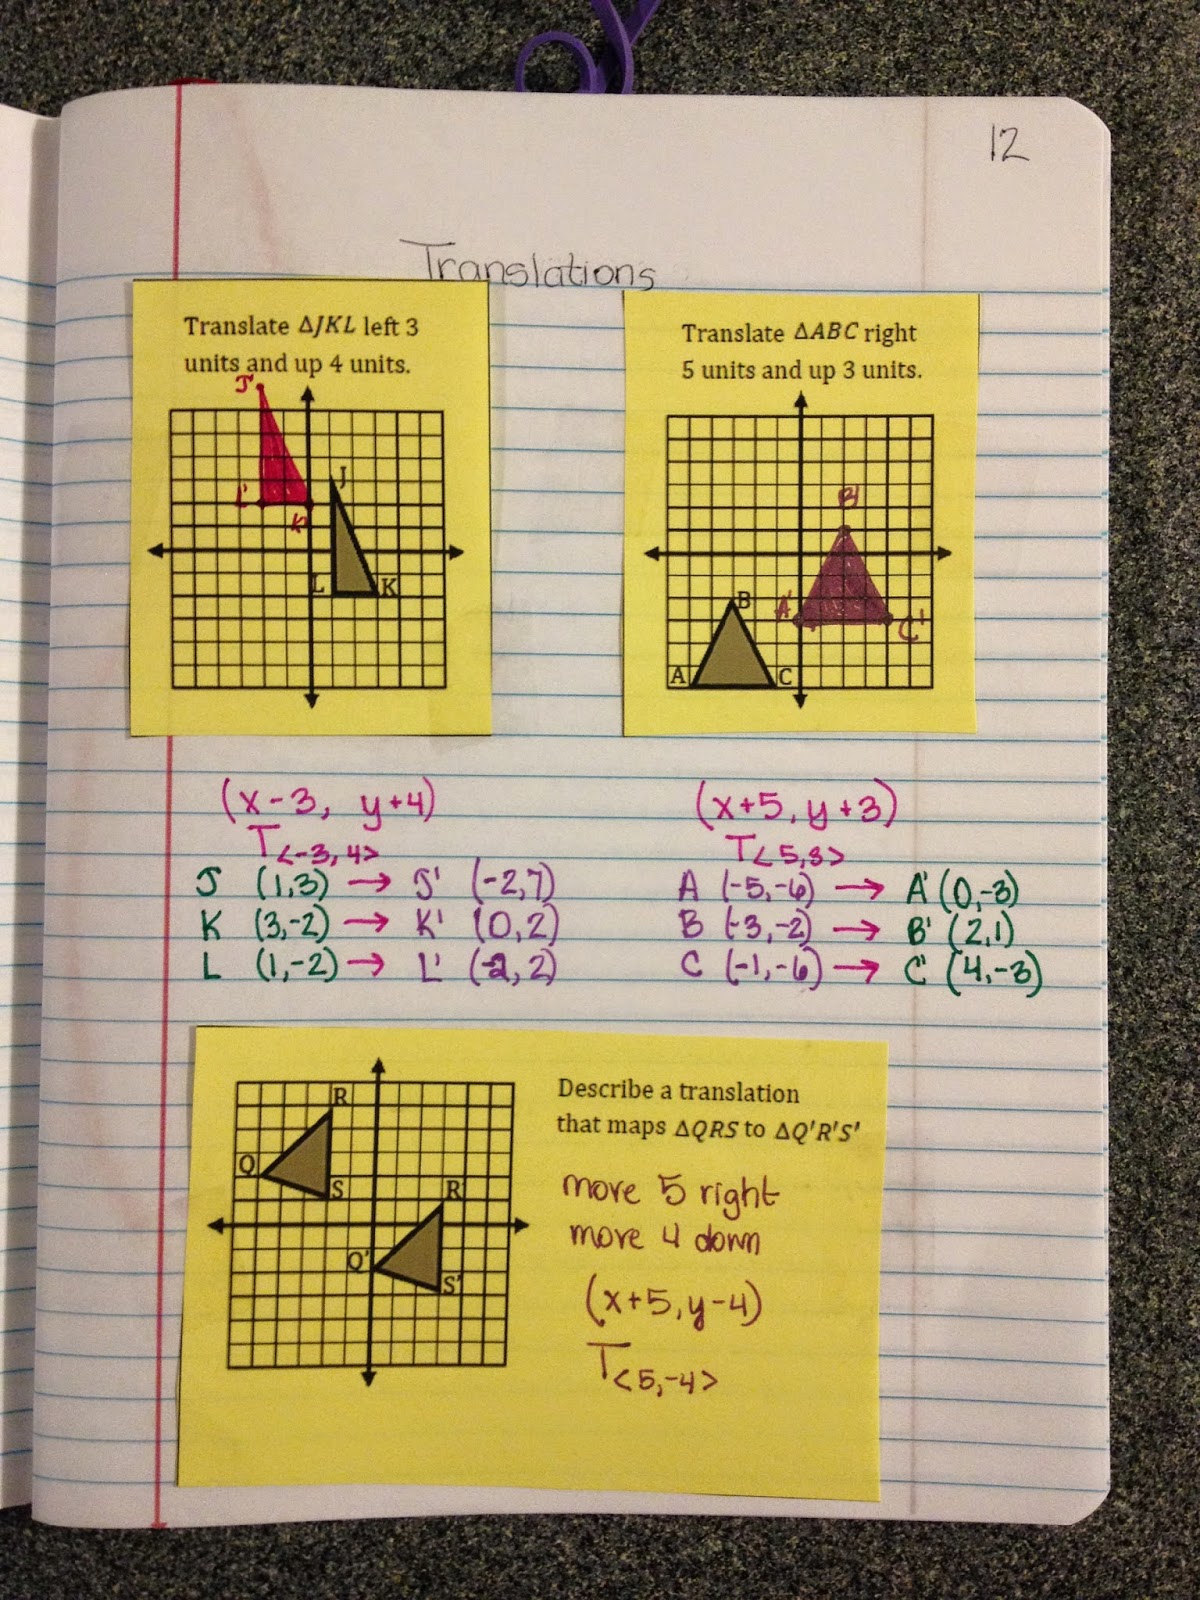 12
Translations
Translate ΔJKL left 3
units and up 4 units.
J'
J
L'
K'
L
K
Translate ΔABC right
5 units and up 3 units.
B'
B
A'
C'
A
C
(x-3, y+4)
T<-3,4>
J (1,3) → J' (-2,7)
K (3,-2) → K' (0,2)
L (1,-2) → L' (-2,2)
(x+5, y+3)
T<5,3>
A (-5,-6) → A' (0,-3)
B (-3,-2) → B' (2,1)
C (-1,-6) → C' (4,-3)
R
Q
S
R'
Q'
S'
Describe a translation
that maps ΔQRS to ΔQ'R'S'
move 5 right
move 4 down
(x+5, y-4)
T<5,-4>